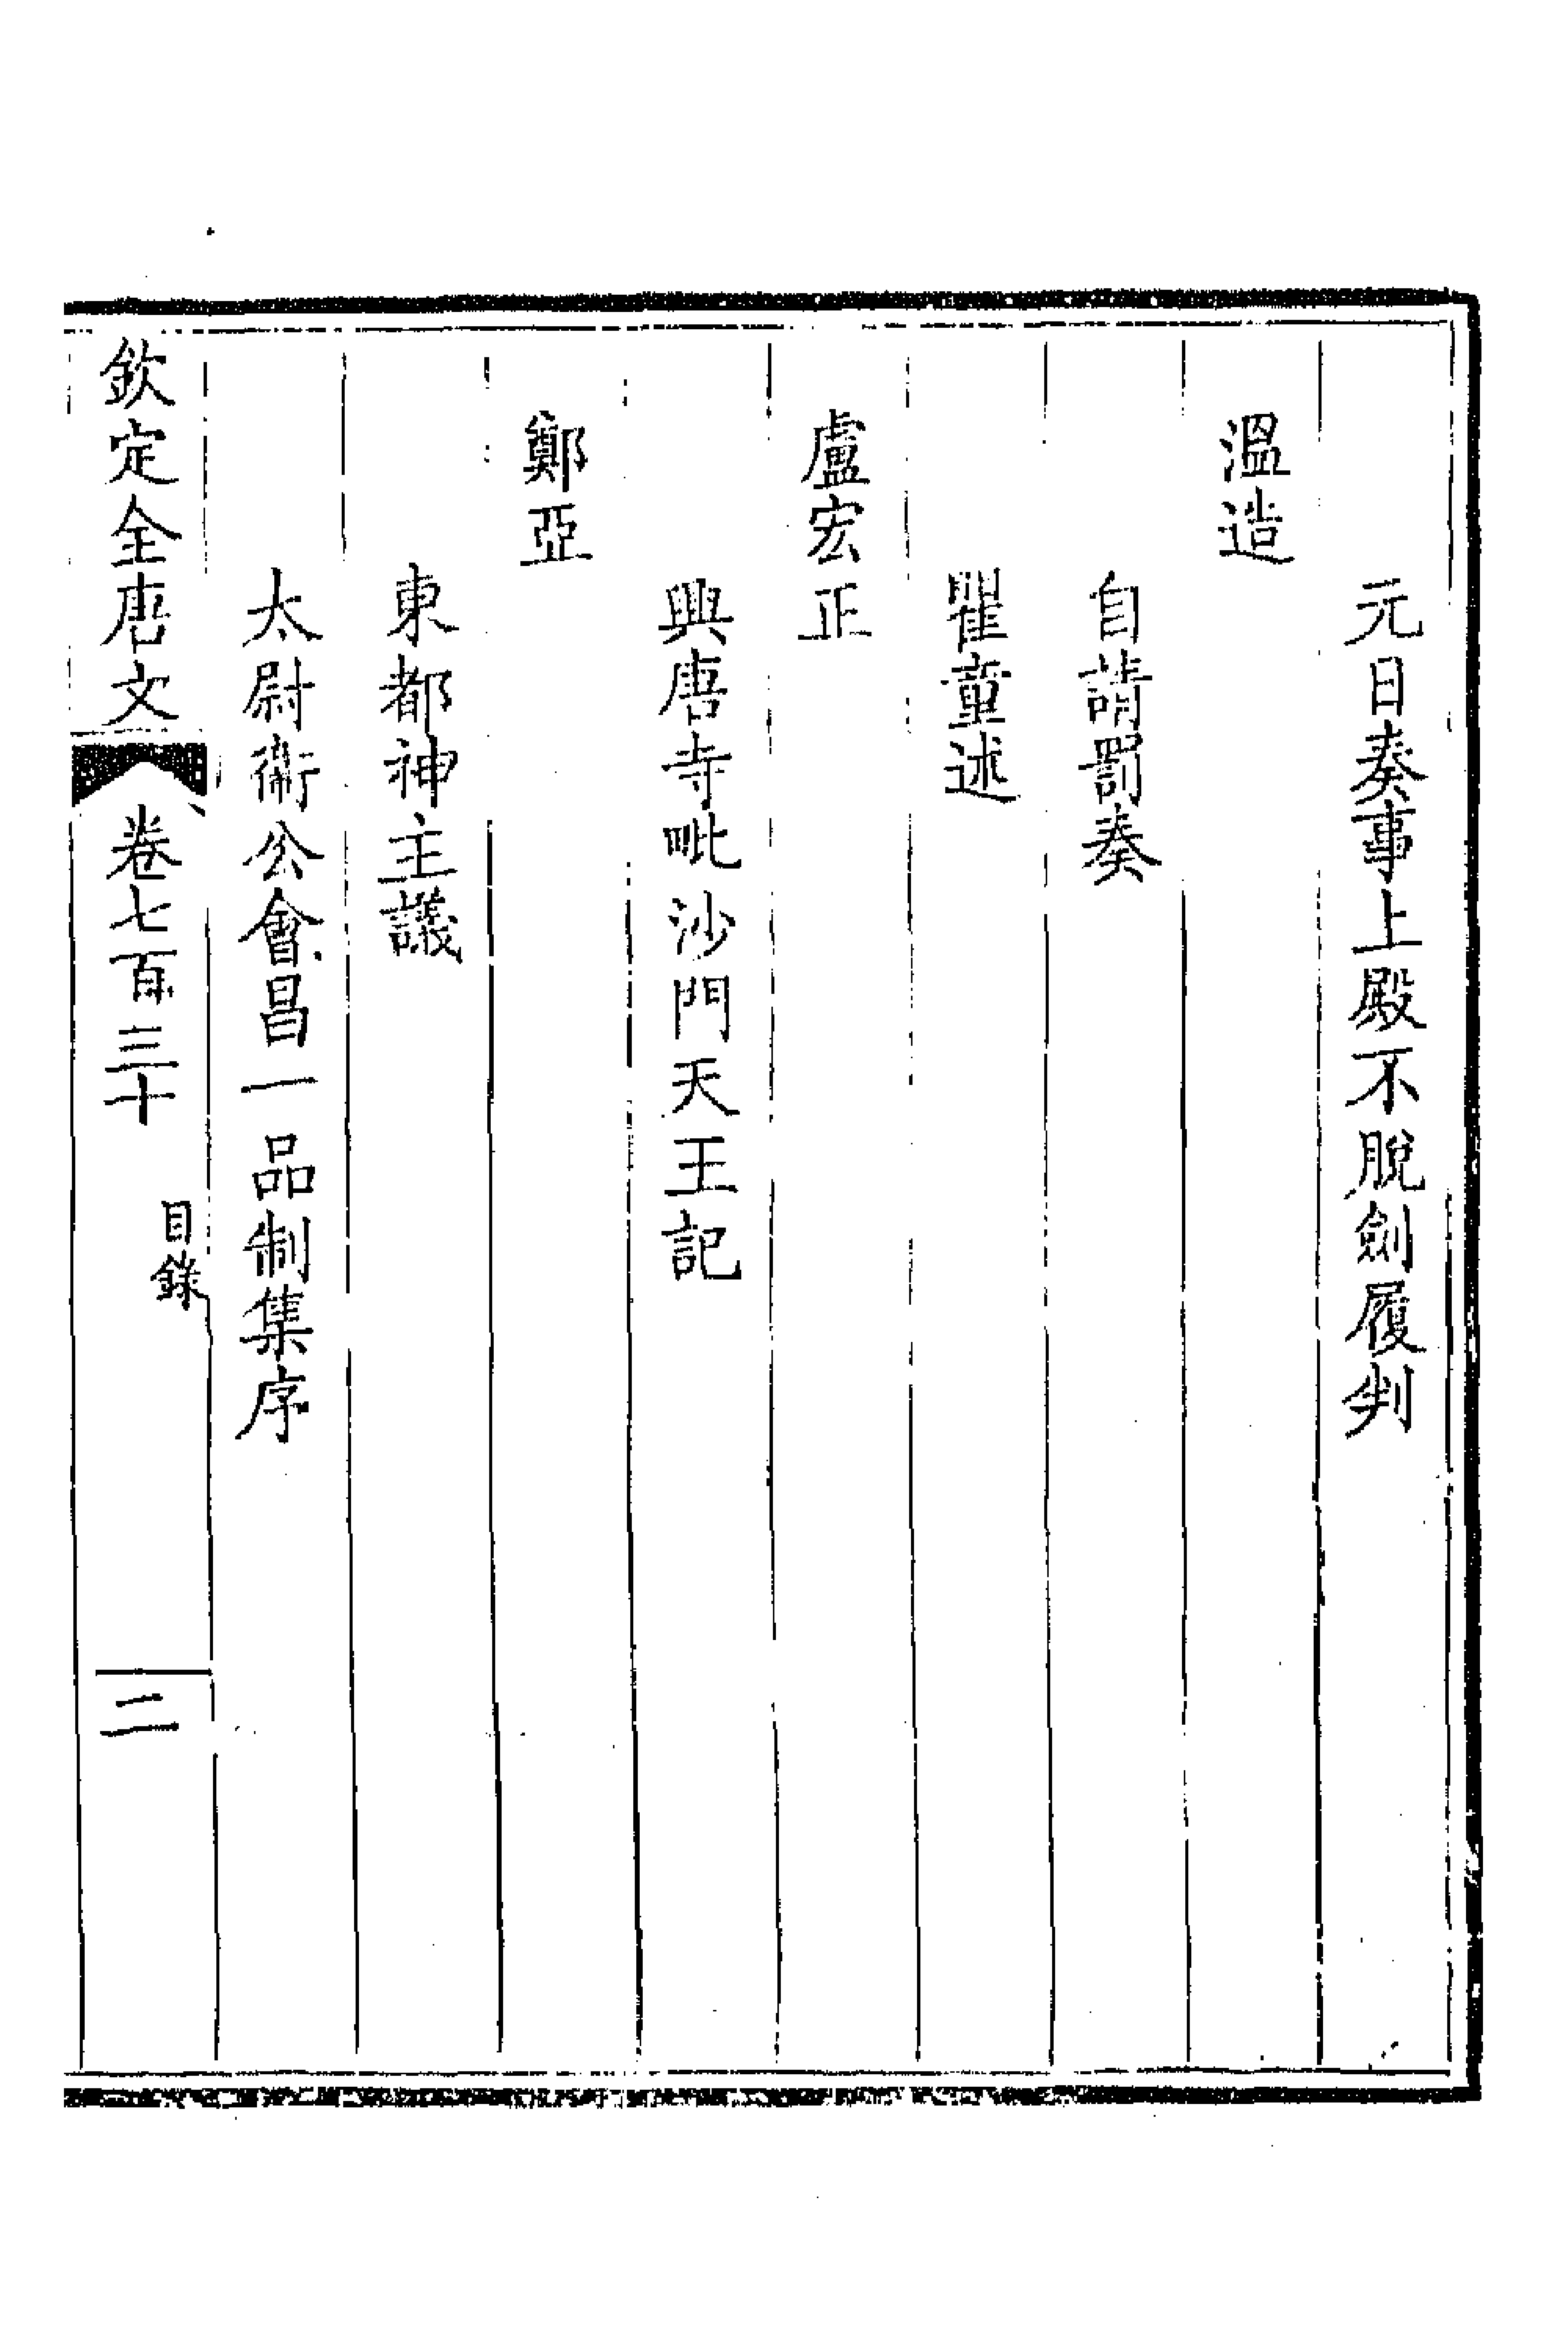 元日奏事上殿不脫劍履判
溫造
自請罰奏
瞿童述
盧宏正
興唐寺毗沙門天王記
鄭亞
東都神主議
太尉衞公會昌一品制集序
欽定全唐文
卷七百三十
目錄
二